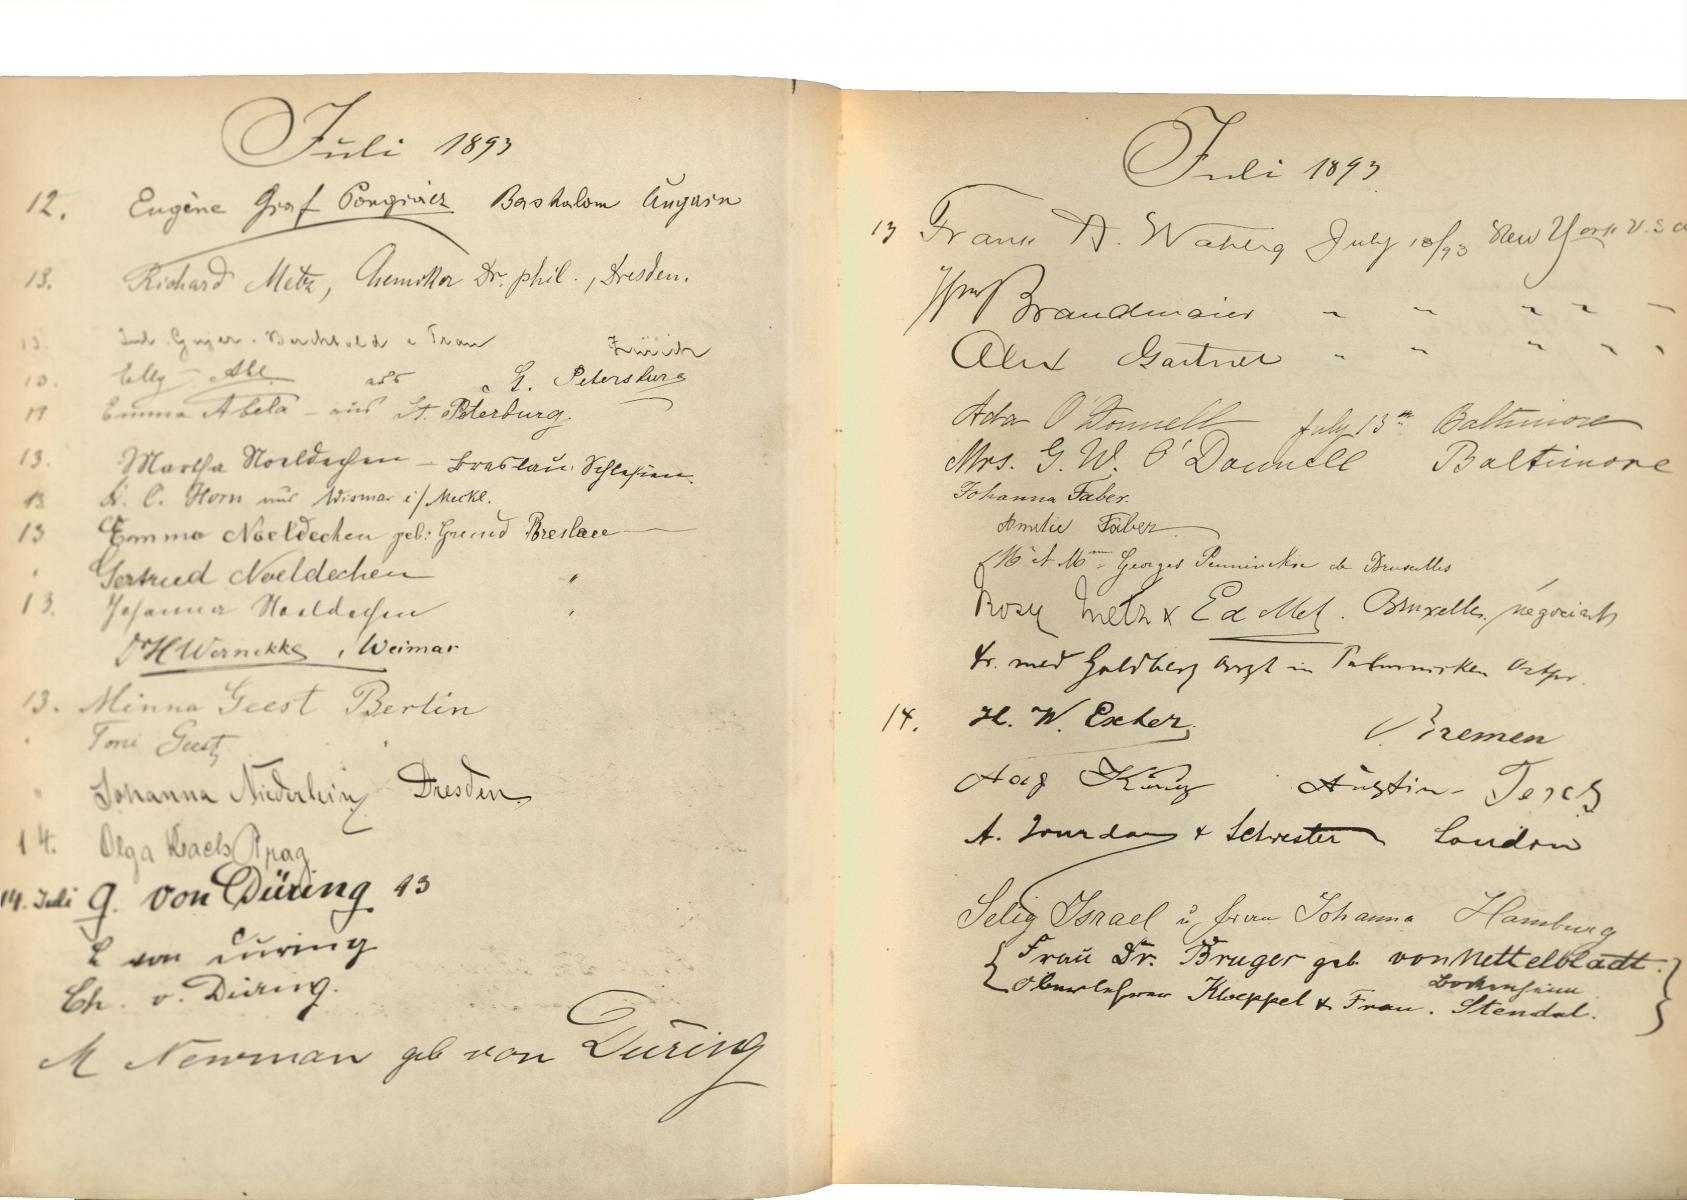 Juli 1893
12. Eugène Graf Pongrácz Baskalom Ungarn
13. Richard Metz, Chemiker Dr. phil., Dresden.
13. Frau Zürich
13. Elly Abl aus St. Petersburg
13 Emma Abela – aus St. Petersburg.
13. Martha Noeldechen – Breslau. Schlesien.
13 C. Horn aus Wismar i/Meckl.
13 Emma Noeldechen geb: Grund Breslau
Gertrud Noeldechen "
13. Johanna Noeldechen "
Dr H Wernekke, Weimar
13. Minna Geest Berlin
Toni Geest
" Johanna Niederlein Dresden.
14. Olga Prag
14. Juli G. von Düring 93
E von Düring
Ch. v. Düring.
M Newman geb von Düring
Juli 1893
13 Frank A. Wahlig July 13/93 New York U.S.A
Wm Brandmaier " " " " "
Alex Gartner " " " " "
Ada O'Donnell July 13th Baltimore
Mrs. G. W. O'Donnell Baltimore
Johanna Faber.
Amelie Faber
Mr et Mme Georges de Bruxelles
Rosy Metz & Ed Metz. Bruxelles, négociants
Dr. med Goldberg Arzt in Ostpr.
14. H. W. Exter, Bremen
Aug König Austin – Texas
A. Jourdan & Schwester London
Selig Israel u. Frau Johanna Hamburg
Frau Dr. Bruger geb. von Nettelbladt.
Bockenheim
Oberlehrer Kloeppel & Frau. Stendal.